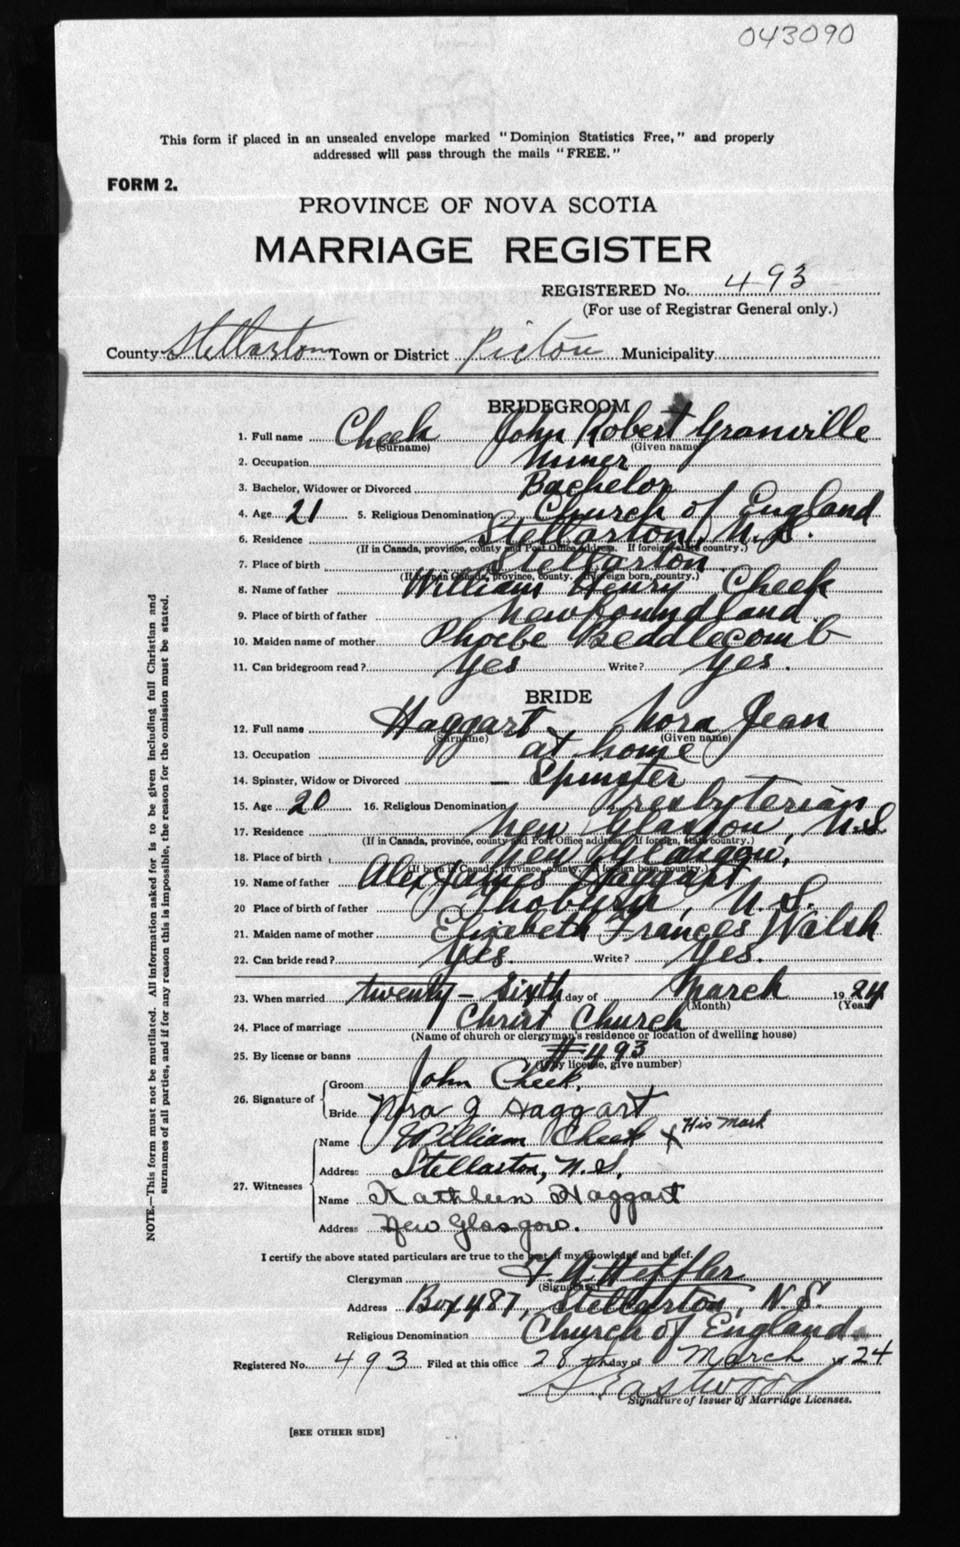 043090
This form if placed in an unsealed envelope marked "Dominion Statistics Free," and properly
addressed will pass through the mails "FREE."
FORM 2.
PROVINCE OF NOVA SCOTIA
MARRIAGE REGISTER
REGISTERED No. 493
(For use of Registrar General only.)
County Stellarton Town or District Pictou Municipality
BRIDEGROOM
1. Full name Cheek John Robert Granville
(Surname) (Given name)
2. Occupation Miner
3. Bachelor, Widower or Divorced Bachelor
4. Age 21 5. Religious Denomination Church of England
6. Residence Stellarton, N.S.
(If in Canada, province, county and Post Office address. If foreign, state country.)
7. Place of birth Stellarton
(If born in Canada, province, county. If foreign born, country.)
8. Name of father William Henry Cheek
9. Place of birth of father Newfoundland
10. Maiden name of mother Phoebe Beddlecomb
11. Can bridegroom read? Yes Write? Yes.
BRIDE
12. Full name Haggart Nora Jean
(Surname) (Given name)
13. Occupation at home
14. Spinster, Widow or Divorced – Spinster
15. Age 20 16. Religious Denomination Presbyterian
17. Residence New Glasgow, N.S.
(If in Canada, province, county and Post Office address. If foreign, state country.)
18. Place of birth New Glasgow,
(If born in Canada, province, county. If foreign born, country.)
19. Name of father Alex James Haggart
20 Place of birth of father N.S.
21. Maiden name of mother Elizabeth Frances Walsh
22. Can bride read? Yes. Write? Yes.
23. When married twenty-sixth day of March 1924
(Month) (Year)
24. Place of marriage Christ Church
(Name of church or clergyman's residence or location of dwelling house)
25. By license or banns #493
(If by license, give number)
26. Signature of
Groom John Cheek.
Bride Nora J Haggart
27. Witnesses
Name William Cheek X His Mark
Address Stellarton, N.S.
Name Kathleen Haggart
Address New Glasgow.
I certify the above stated particulars are true to the best of my knowledge and belief.
Clergyman Heffler
(Signature)
Address Box 487, Stellarton, N.S.
Religious Denomination Church of England.
Registered No. 493 Filed at this office 28th day of March 1924
Eastwood
Signature of Issuer of Marriage Licenses.
[SEE OTHER SIDE]
NOTE.—This form must not be mutilated. All information asked for is to be given including full Christian and
surnames of all parties, and if for any reason this is impossible, the reason for the omission must be stated.